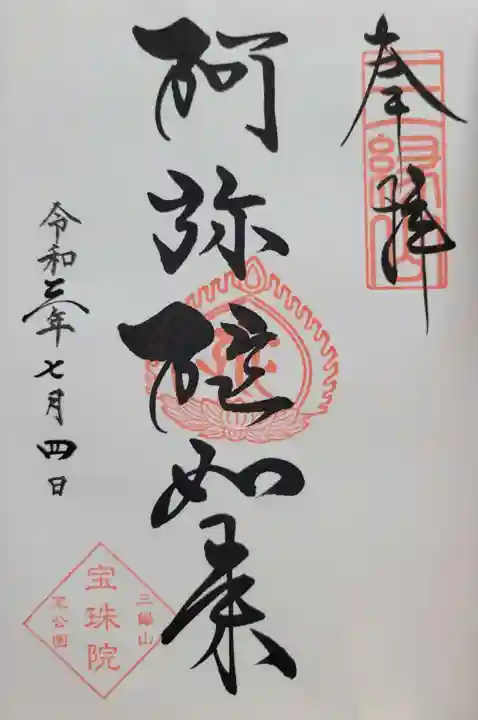 奉拝
三縁山
阿弥陀如来
令和三年七月四日
三縁山
宝珠院
芝公園